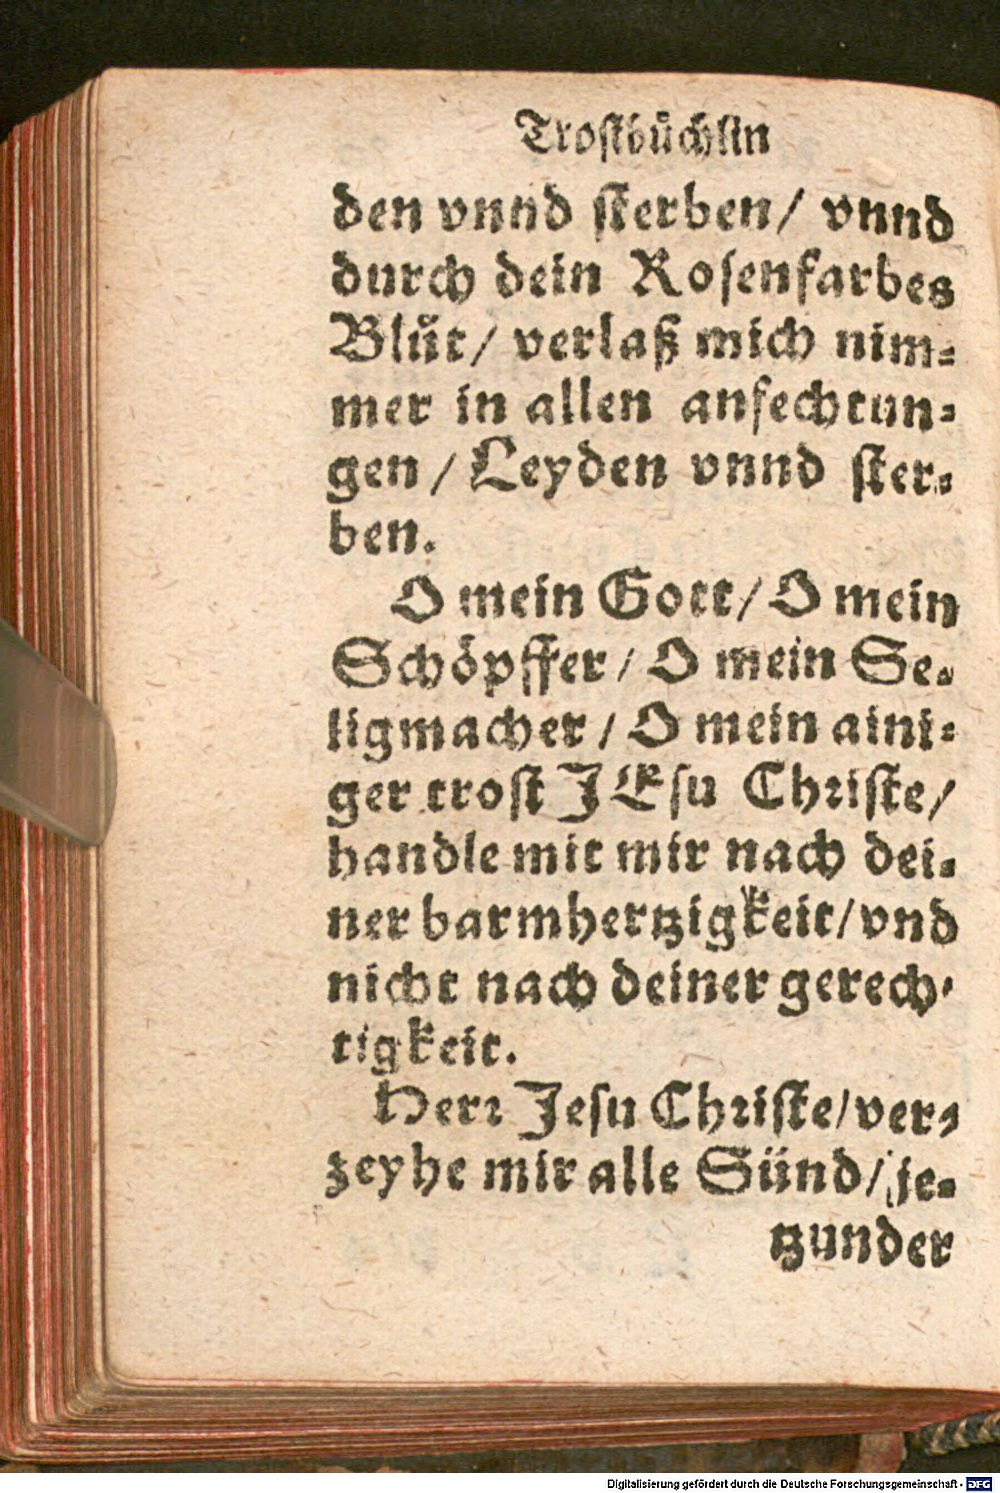 Trostbuͤchlin
den vnnd sterben/ vnnd
durch dein Rosenfarbes
Bluͦt/ verlaß mich nim⸗
mer in allen anfechtun⸗
gen/ Leyden vnnd ster⸗
ben.
O mein Gott/ O mein
Schöpffer/ O mein Se⸗
ligmacher/ O mein aini⸗
ger trost JEsu Christe/
handle mit mir nach dei⸗
ner barmhertzigkeit/ vnd
nicht nach deiner gerech⸗
tigkeit.
Herr Jesu Christe/ ver⸗
zeyhe mir alle Sünd/ je⸗
tzunder
Digitalisierung gefördert durch die Deutsche Forschungsgemeinschaft - DFG